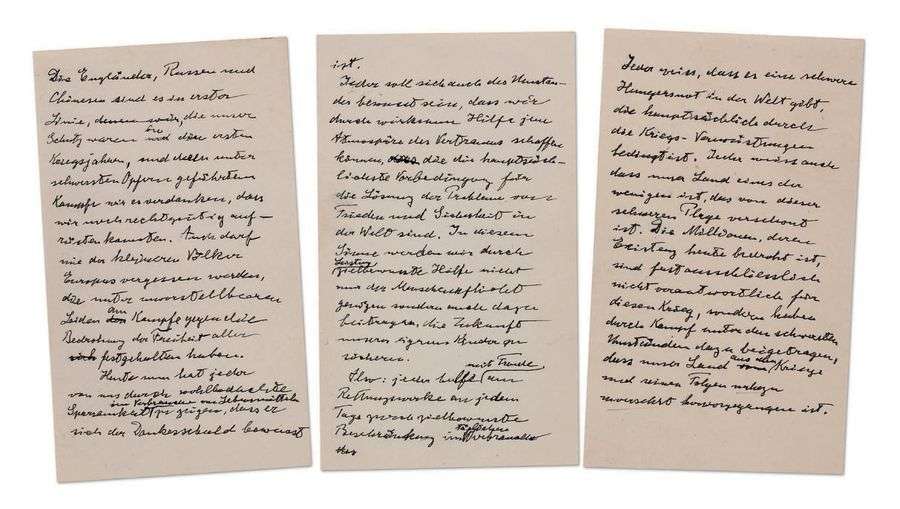 Die Engländer, Russen und
Chinesen sind es in erster
Linie, denen wir, die unser
Schutz waren die ersten
Kriegsjahre, und deren unter
schwersten Opfern geführtem
Kampfe wir es verdanken, dass
wir noch rechtzeitig auf-
rüsten konnten. Auch darf
nie der kleineren Völker
Europas vergessen werden,
die unter unvorstellbaren
Leiden am Kampfe gegen die
Bedrohung der Freiheit aller
festgehalten haben.
Heute nun hat jeder
von uns durch wohlbedachte
im Verbrauche von Lebensmitteln
Sparsamkeit zu zeigen, dass er
sich der Dankesschuld bewusst
ist.
Jeder soll sich auch des Umstan-
des bewusst sein, dass wir
durch wirksame Hilfe jene
Atmosphäre des Vertrauens schaffen
können, die die hauptsäch-
lichste Vorbedingung für
die Lösung der Probleme von
Frieden und Sicherheit in
der Welt sind. In diesem
Sinne werden wir durch
zielbewusste Hilfe nicht
nur der Menschenpflicht
genügen sondern auch dazu
beitragen, die Zukunft
unserer eigenen Kinder zu
sichern.
mit Freude
Also: jeder helfe am
Rettungswerke an jedem
Tage durch zielbewusste
Beschränkung im Verbrauche
Jeder weiss, dass es eine schwere
Hungersnot in der Welt gibt,
die hauptsächlich durch
die Kriegs-Verwüstungen
bedingt ist. Jeder weiss auch
dass unser Land eines der
wenigen ist, das von dieser
schweren Plage verschont
ist. Die Millionen, deren
Existenz heute bedroht ist,
sind fast ausschliesslich
nicht verantwortlich für
diesen Krieg, sondern haben
durch Kampf unter den schwersten
Umständen dazu beigetragen,
dass unser Land aus dem Kriege
und seinen Folgen nahezu
unversehrt hervorgegangen ist.